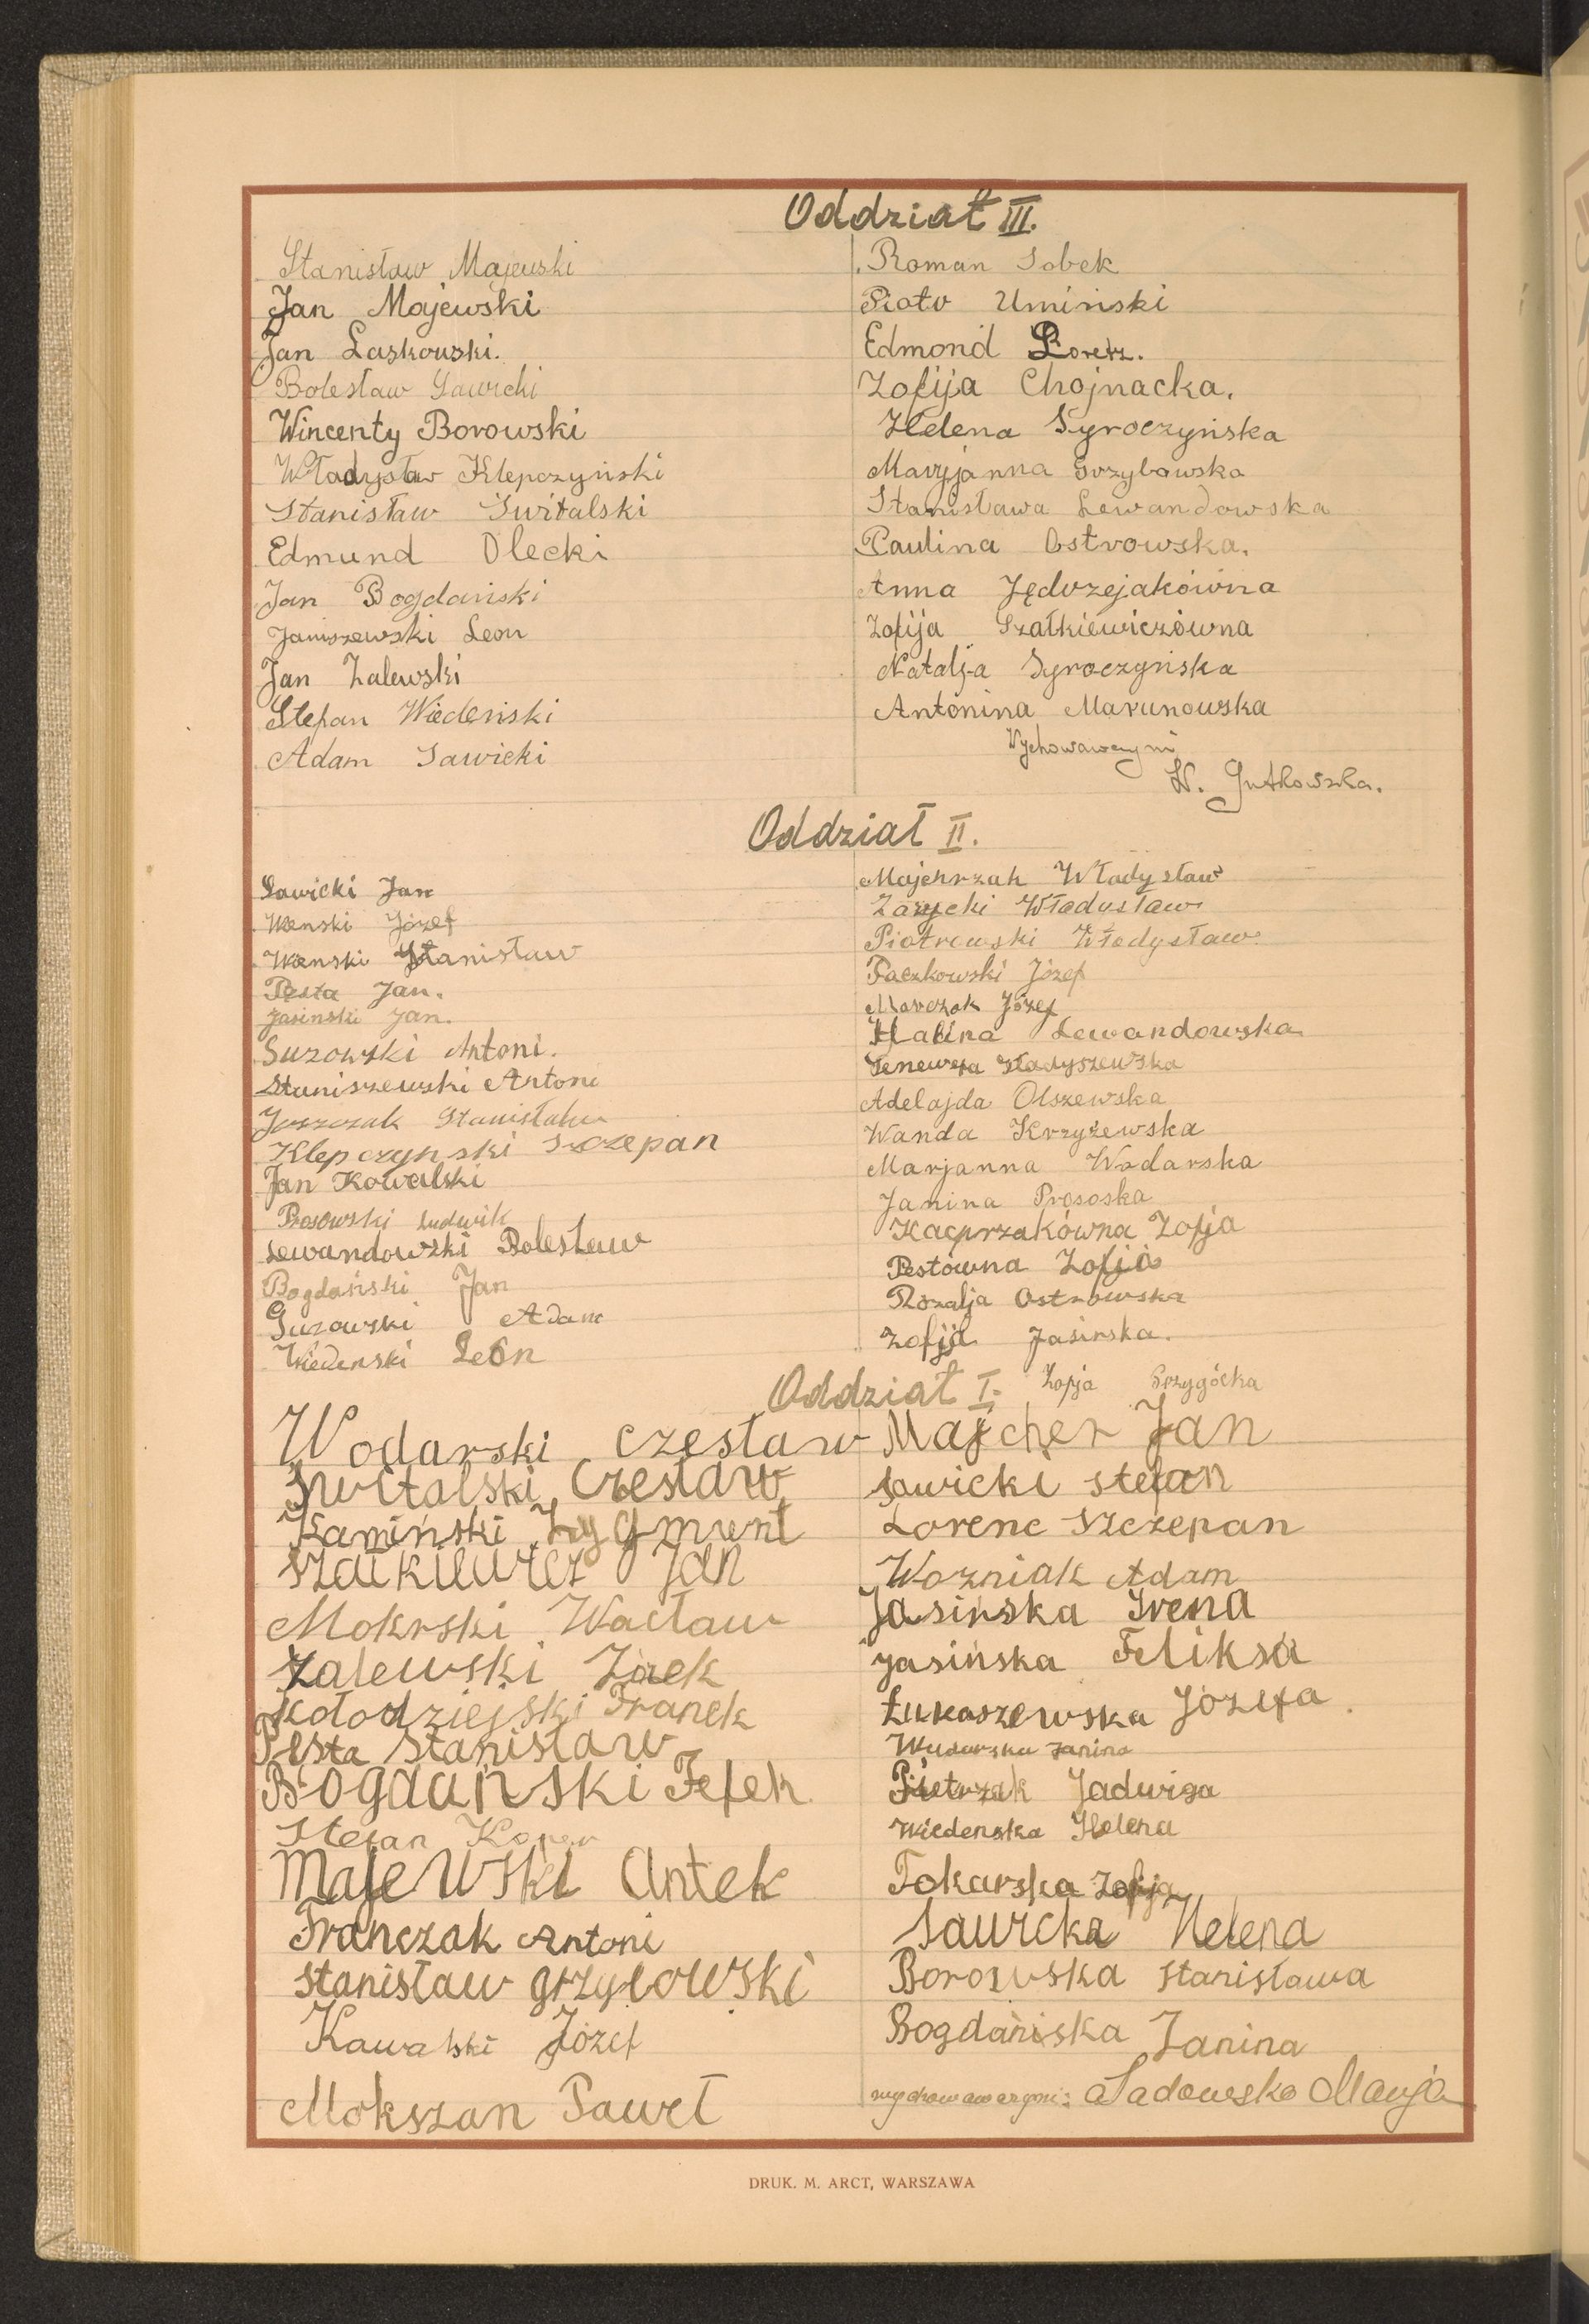 Oddział III.
Stanisław Majewski
Jan Majewski
Jan Laskowski.
Bolesław Sawicki
Wincenty Borowski
Władysław Klepczyński
Stanisław Świtalski
Edmund Olecki
Jan Bogdański
Janiszewski Leon
Jan Zalewski
Stefan Wiedeński
Adam Sawicki
Roman Sobek
Piotr Umiński
Edmond Loretz.
Zofija Chojnacka.
Helena Syroczyńska
Maryjanna Grzybowska
Stanisława Lewandowska
Paulina Ostrowska.
Anna Jędrzejakówna
Zofija Szałkiewiczówna
Natalja Syroczyńska
Antonina Marunowska
Wychowawczyni
W. Gutkowska.
Oddział II.
Sawicki Jan
Wenski Józef
Wenski Stanisław
Pesta Jan.
Jasinski Jan.
Guzowski Antoni.
Staniszewski Antoni
Joszczak Stanisław
Klepczynski Szczepan
Jan Kowalski
Prosowski Ludwik
Lewandowski Bolesław
Bogdański Jan
Guzowski Adam
Wiedenski Leon
Majchrzak Władysław
Zarycki Władysław
Piotrowski Władysław
Paczkowski Józef
Marczak Józef
Halina Lewandowska
Genewefa Gładyszewska
Adelajda Olszewska
Wanda Krzyżewska
Marjanna Wodarska
Janina Prososka
Kacprzakówna Zofja
Pestówna Zofja
Rozalja Ostrowska
Zofjja Jasinska.
Zofja Przygócka
Oddział I.
Wodarski Czesław
Świtalski Czesław
Kamiński Zygmunt
Szałkiewicz Jan
Mokrski Wacław
Zalewski Jacek
Kołodziejski Franek
Pesta Stanisław
Bogdański Felek
Stefan
Majewski Antek
Franczak Antoni
Stanisław Grzybowski
Kawalski Józef
Mokszan Paweł
Majcher Jan
Sawicki Stefan
Lorenc Szczepan
Wozniak Adam
Jasińska Irena
Jasińska Feliksa
Łukaszewska Józefa
Wudarska Janina
Pietrzak Jadwiga
Wiedenska Helena
Tokarska Zofja
Sawicka Helena
Borowska Stanisława
Bogdańska Janina
wychowawczyni: Sadowska Marja
DRUK. M. ARCT, WARSZAWA